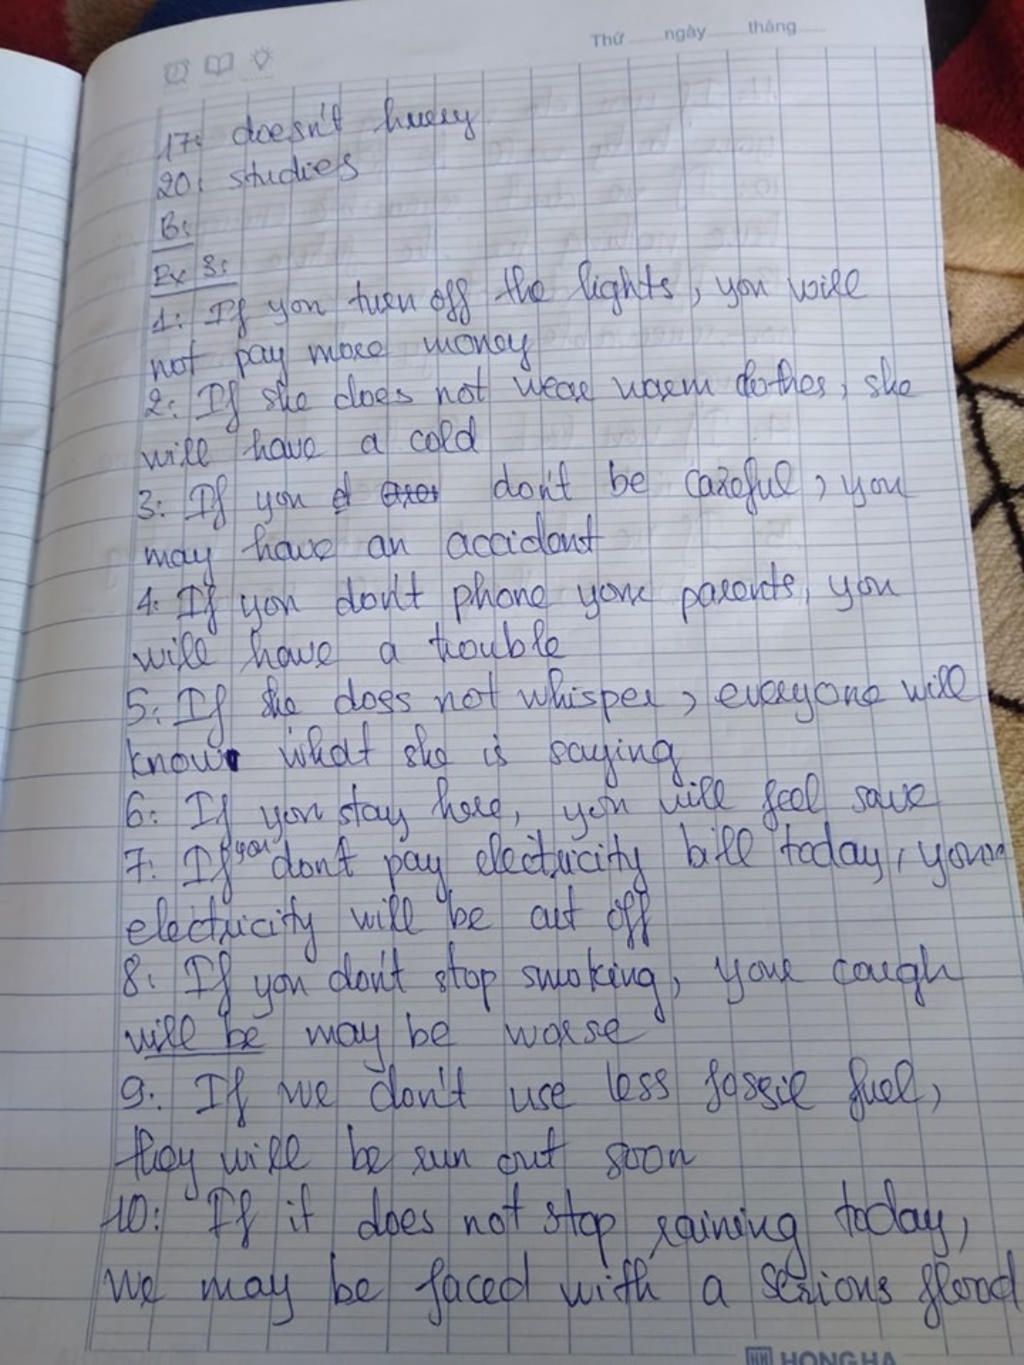 Thứ ngày tháng
17: doesn't hurry
20: studies
B:
Ex 3:
1: If you turn off the lights, you will
not pay more money
2: If she does not wear warm clothes, she
will have a cold
3: If you don't be careful, you
may have an accidont
4: If you don't phone your parents, you
will have a trouble
5: If she does not whisper, everyone will
know what she is saying
6: If you stay here, you will feel save
7: If you don't pay electricity bill today, your
electricity will be cut off
8: If you don't stop smoking, your cough
will be may be worse
9: If we don't use less fossil fuel,
they will be run out soon
10: If it does not stop raining today,
we may be faced with a serious flood
HONG HA